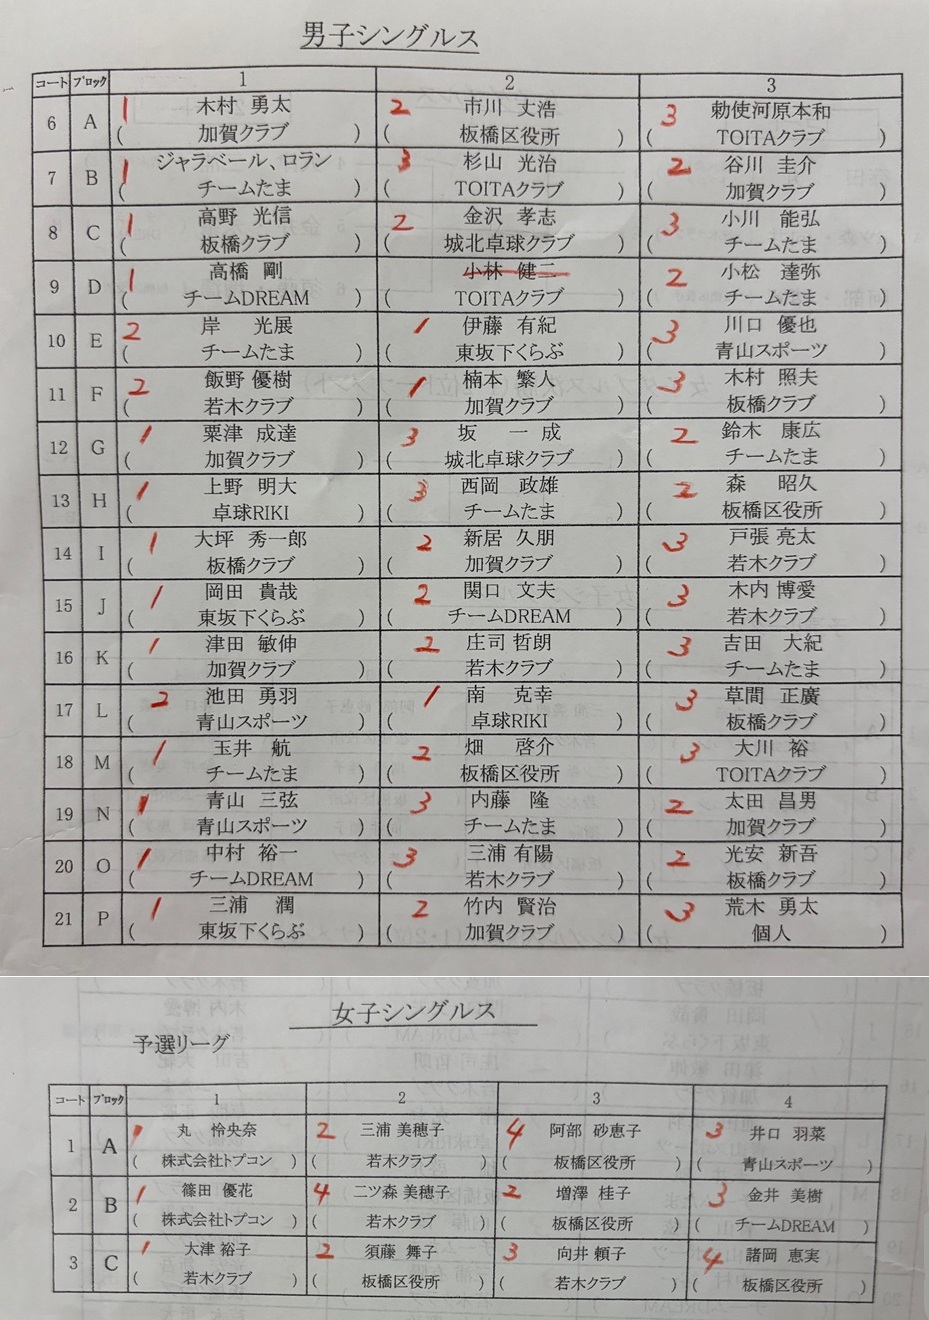 男子シングルス
コート ブロック 1 2 3
6 A 1 木村 勇太 2 市川 丈浩 3 勅使河原本和
( 加賀クラブ ) ( 板橋区役所 ) ( TOITAクラブ )
7 B 1 ジャラベール、ロラン 3 杉山 光治 2 谷川 圭介
( チームたま ) ( TOITAクラブ ) ( 加賀クラブ )
8 C 1 高野 光信 2 金沢 孝志 3 小川 能弘
( 板橋クラブ ) ( 城北卓球クラブ ) ( チームたま )
9 D 1 高橋 剛 小林 健二 2 小松 達弥
( チームDREAM ) ( TOITAクラブ ) ( チームたま )
10 E 2 岸 光展 1 伊藤 有紀 3 川口 優也
( チームたま ) ( 東坂下くらぶ ) ( 青山スポーツ )
11 F 2 飯野 優樹 1 楠本 繁人 3 木村 照夫
( 若木クラブ ) ( 加賀クラブ ) ( 板橋クラブ )
12 G 1 粟津 成達 3 坂 一成 2 鈴木 康広
( 加賀クラブ ) ( 城北卓球クラブ ) ( チームたま )
13 H 1 上野 明大 3 西岡 政雄 2 森 昭久
( 卓球RIKI ) ( チームたま ) ( 板橋区役所 )
14 I 1 大坪 秀一郎 2 新居 久朋 3 戸張 亮太
( 板橋クラブ ) ( 加賀クラブ ) ( 若木クラブ )
15 J 1 岡田 貴哉 2 関口 文夫 3 木内 博愛
( 東坂下くらぶ ) ( チームDREAM ) ( 若木クラブ )
16 K 1 津田 敏伸 2 庄司 哲朗 3 吉田 大紀
( 加賀クラブ ) ( 若木クラブ ) ( チームたま )
17 L 2 池田 勇羽 1 南 克幸 3 草間 正廣
( 青山スポーツ ) ( 卓球RIKI ) ( 板橋クラブ )
18 M 1 玉井 航 2 畑 啓介 3 大川 裕
( チームたま ) ( 板橋区役所 ) ( TOITAクラブ )
19 N 1 青山 三弦 3 内藤 隆 2 太田 昌男
( 青山スポーツ ) ( チームたま ) ( 加賀クラブ )
20 O 1 中村 裕一 3 三浦 有陽 2 光安 新吾
( チームDREAM ) ( 若木クラブ ) ( 板橋クラブ )
21 P 1 三浦 潤 2 竹内 賢治 3 荒木 勇太
( 東坂下くらぶ ) ( 加賀クラブ ) ( 個人 )
女子シングルス
予選リーグ
コート ブロック 1 2 3 4
1 A 1 丸 怜央奈 2 三浦 美穂子 4 阿部 砂恵子 3 井口 羽菜
( 株式会社トプコン ) ( 若木クラブ ) ( 板橋区役所 ) ( 青山スポーツ )
2 B 1 篠田 優花 4 二ツ森 美穂子 2 増澤 桂子 3 金井 美樹
( 株式会社トプコン ) ( 若木クラブ ) ( 板橋区役所 ) ( チームDREAM )
3 C 1 大津 裕子 2 須藤 舞子 3 向井 頼子 4 諸岡 恵実
( 若木クラブ ) ( 板橋区役所 ) ( 若木クラブ ) ( 板橋区役所 )